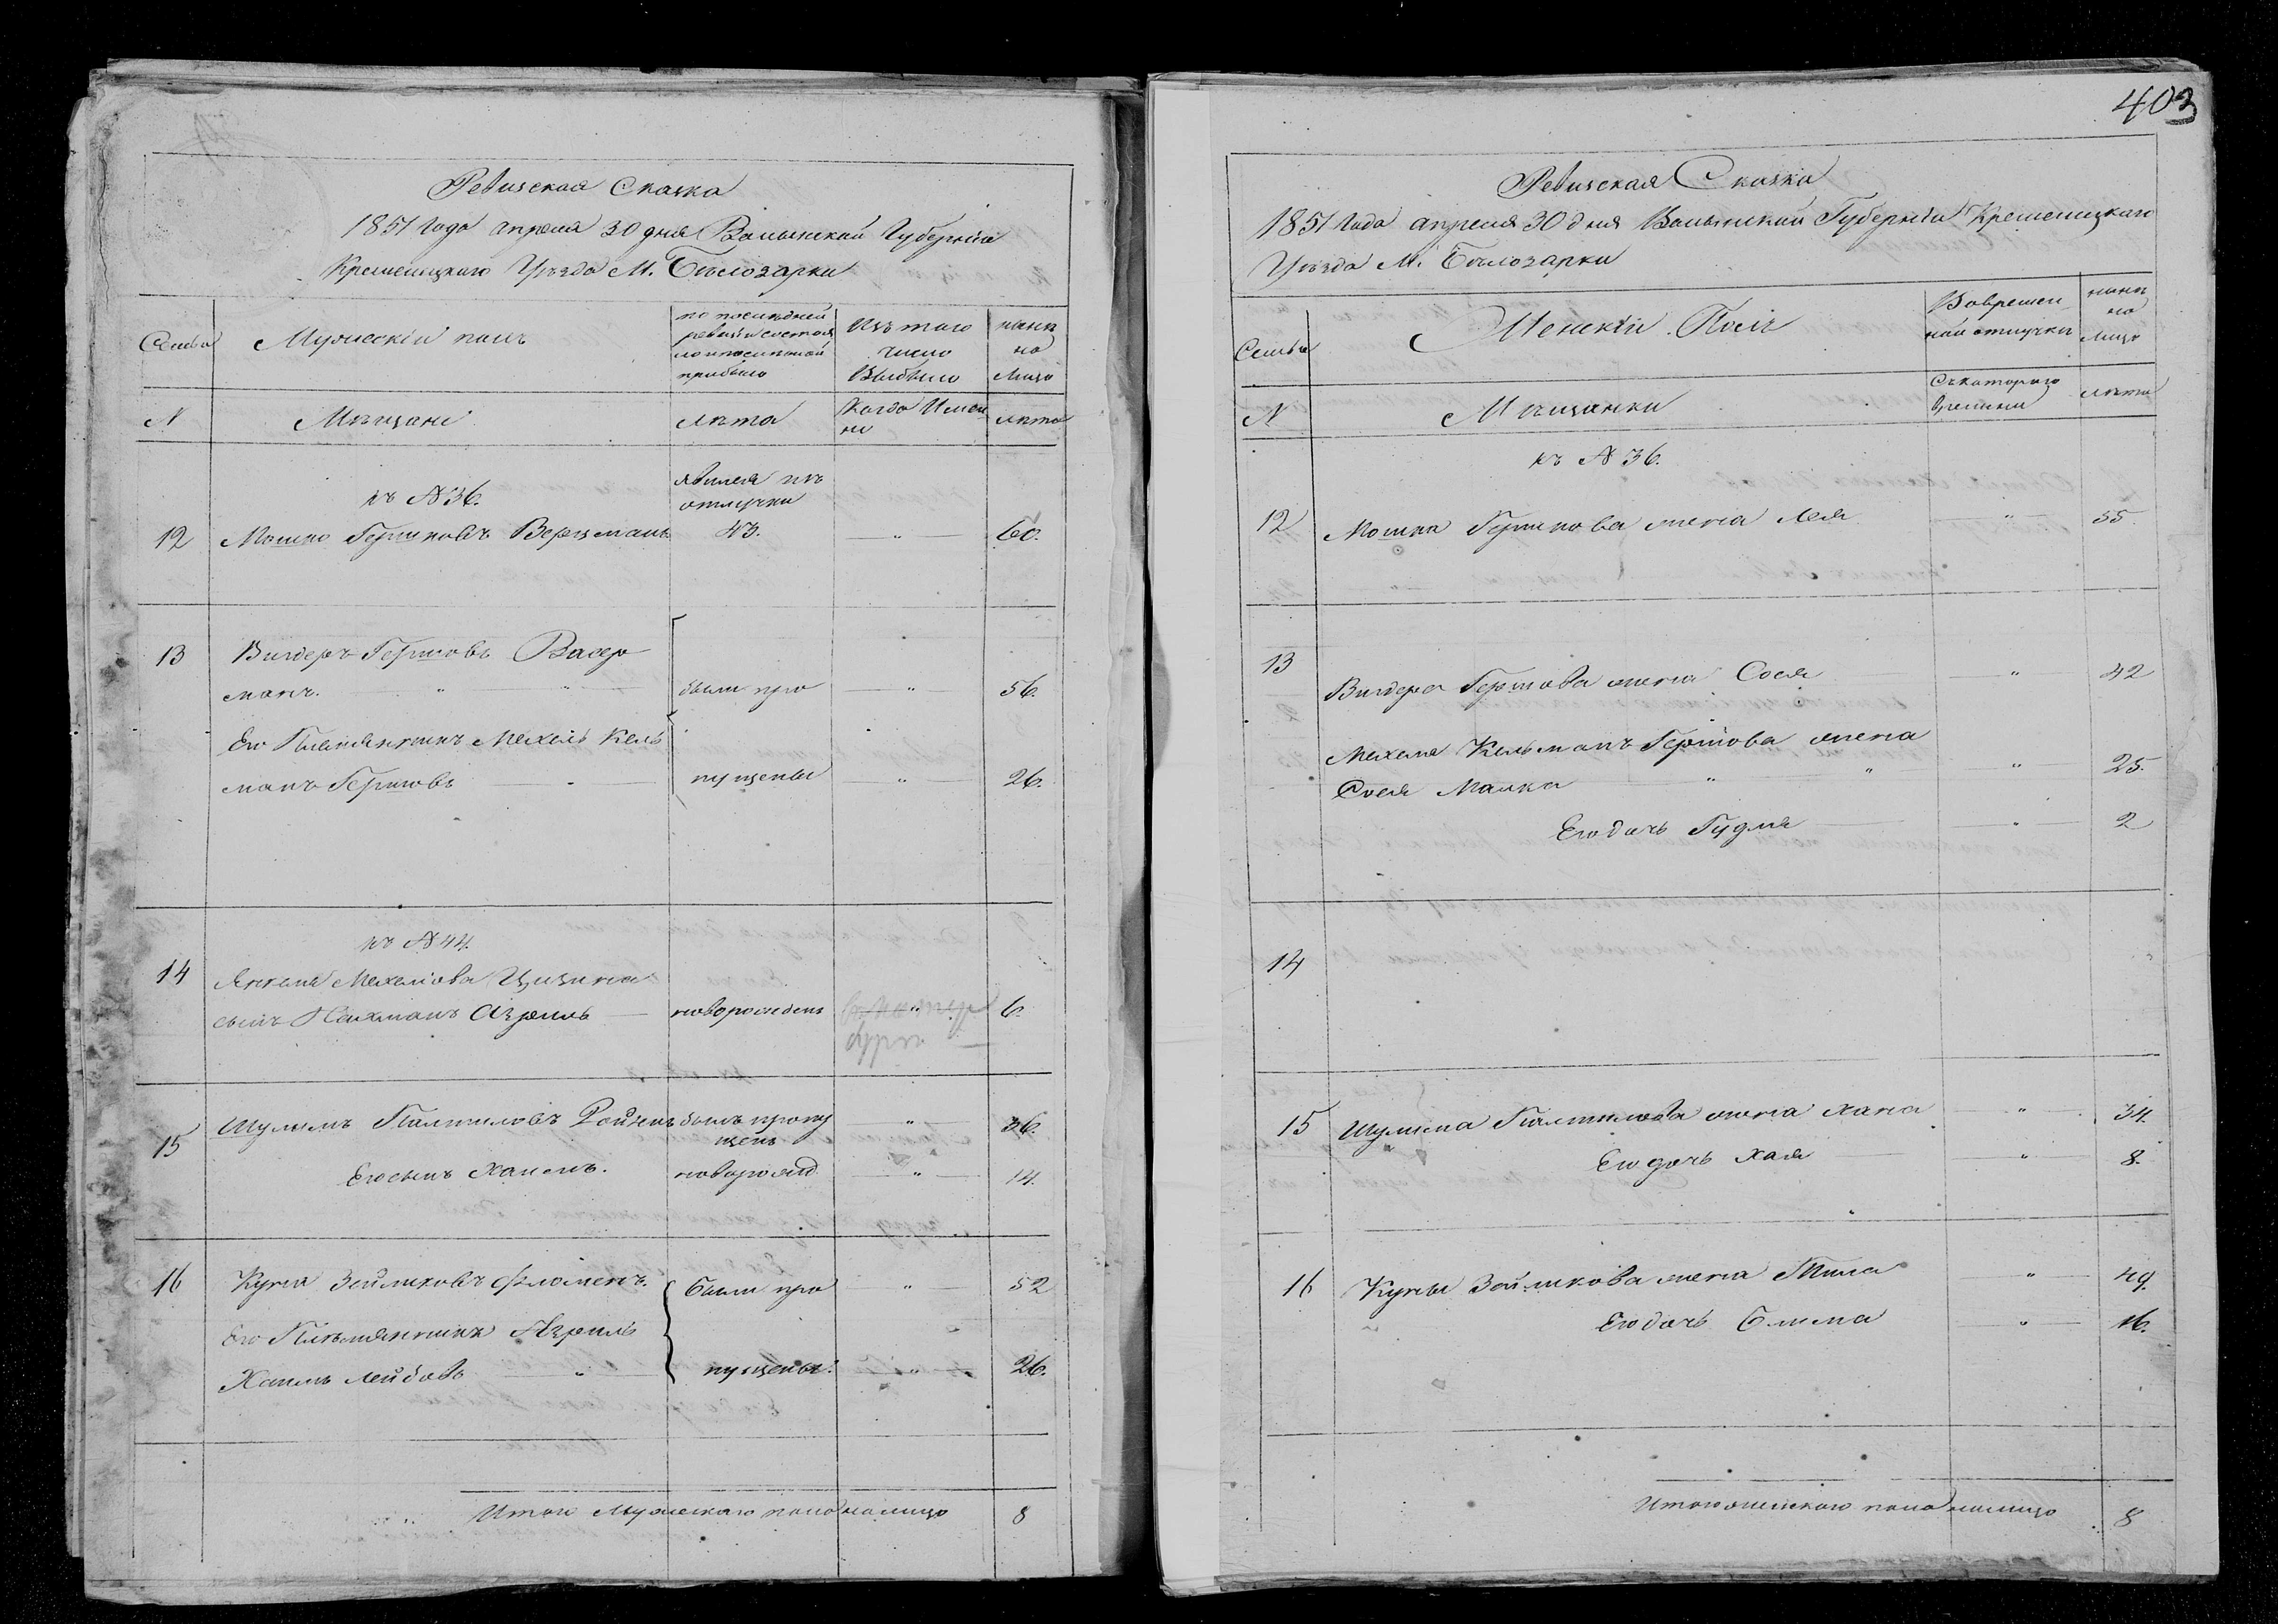 Ревизская Сказка
1851 года апреля 30 дня Волынской Губерніи
Кременецкаго Уѣзда М. Бѣлозарки
Семьи
Мужескій полъ
по последней
ревизіи состоя
ло и после оной
прибыло
Изъ того
числа
Выбыло
нынѣ
на
лицо
N
Мѣщане
лѣта
Когда Имен
но
лѣта
къ N 36.
явился изъ
отлучки
12 Мошко Гершковъ Верцманъ 43. " 60.
13 Вигдеръ Гершовъ Васер
манъ. " " были про " 56.
Его Племянникъ Мехель Кель
манъ Гершовъ " пущены " 26.
къ N 44.
14 Янкеля Мехелюва Цицина
сынъ Нахманъ Азриль новорожденъ " 6.
15 Шулимъ Палтиловъ Ройзенъ былъ пропу " 36.
щенъ
Его сынъ Хаимъ. новорожд " 14.
16 Куна Зейликовъ Фломенъ Были про " 52
Его Племянникъ Азриль
Хаимъ Лейбовъ " пущены. " 26.
Итого Мужескаго пола налицо 8
403
Ревизская Сказка
1851 года апреля 30 дня Волынской Губерніи Кременецкаго
Уѣзда М. Бѣлозарки
Семьи
Женскій Полъ
Во времен
ной отлучкѣ
нынѣ
на
лицо
N
Мѣщанки
Съ котораго
времени
лѣта
къ N 36.
12 Мошка Гершкова жена Лея " 55.
13 Вигдера Гершова жена Сося " 42
Мехеля Кельманъ Гершова жена
Сося Малка " " " 25.
Его дочь Гудля " 2
14
15 Шулима Палтилова жена Хана " 34.
Его дочь Хая " 8.
16 Куны Зейликова жена Тила " 49.
Его дочь Блима " 16.
Итого женскаго пола налицо 8